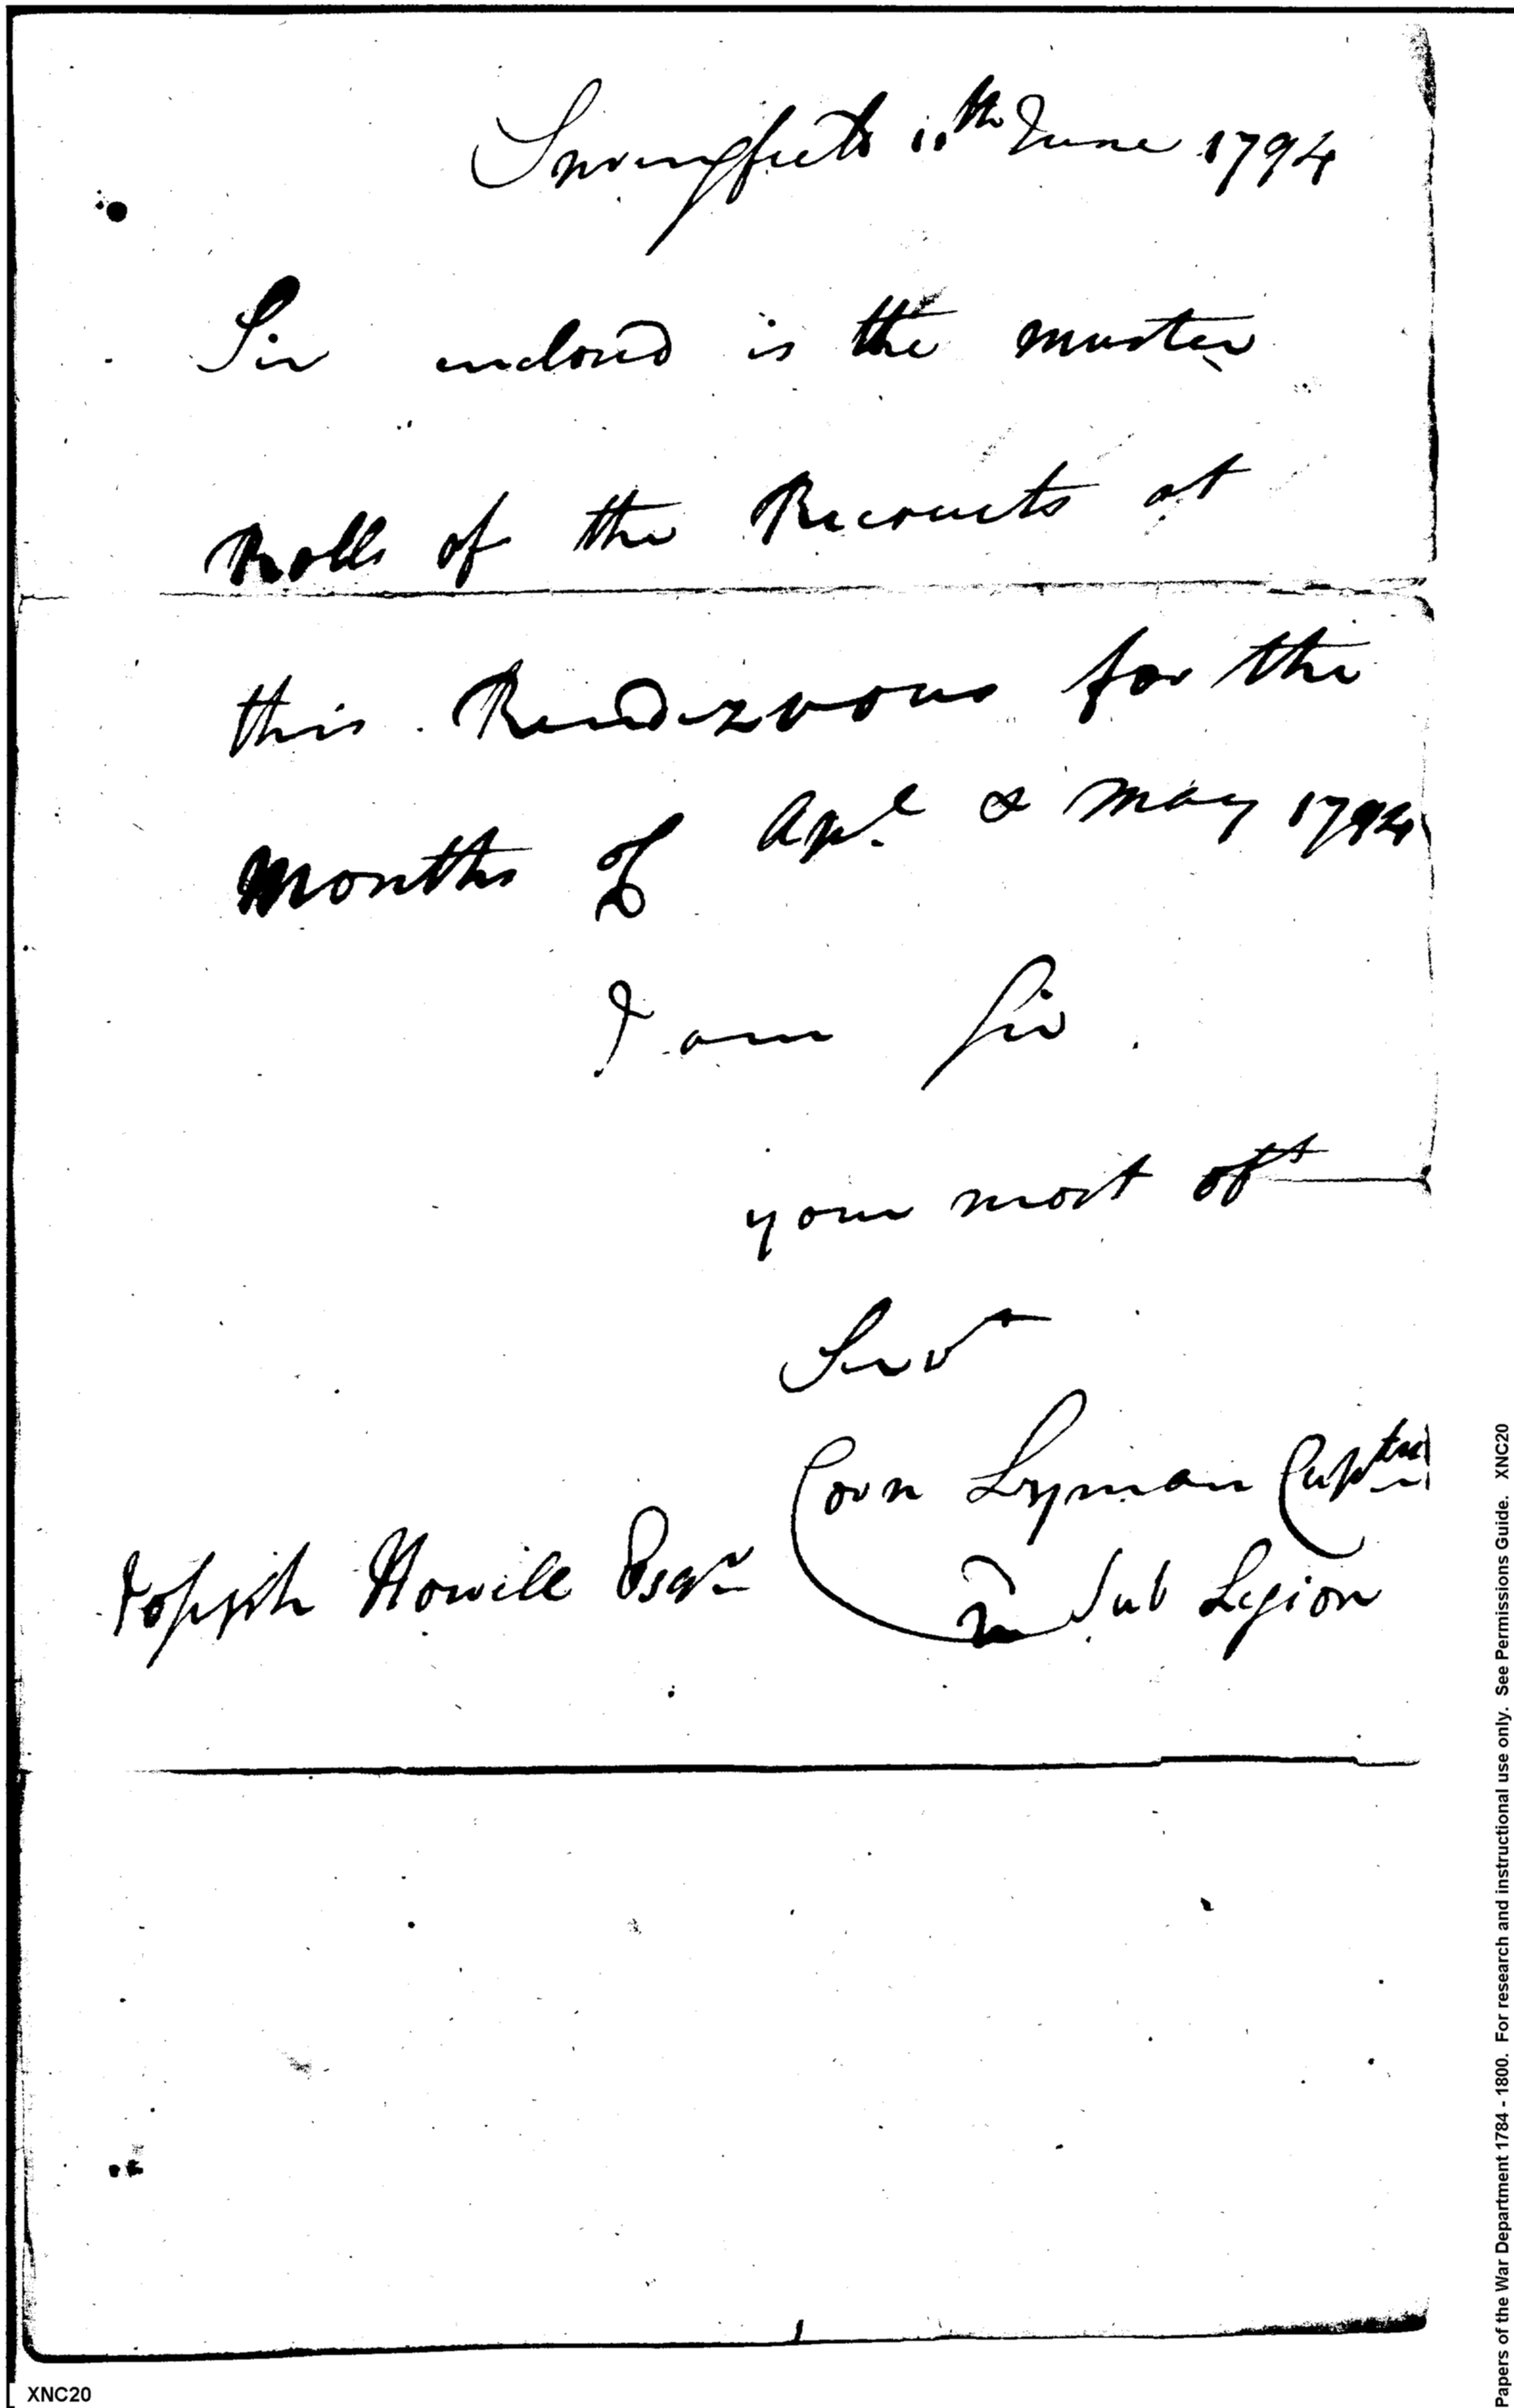 Springfield 11th June 1794
Sir enclosed is the muster
Rolls of the Recruits at
this Rendezvous for the
months of Apl & May 1794
I am Sir
your most obt
Servt
Corn Lyman Captn
2d Sub Legion
Joseph Howell Esqr
Papers of the War Department 1784 - 1800. For research and instructional use only. See Permissions Guide. XNC20
XNC20